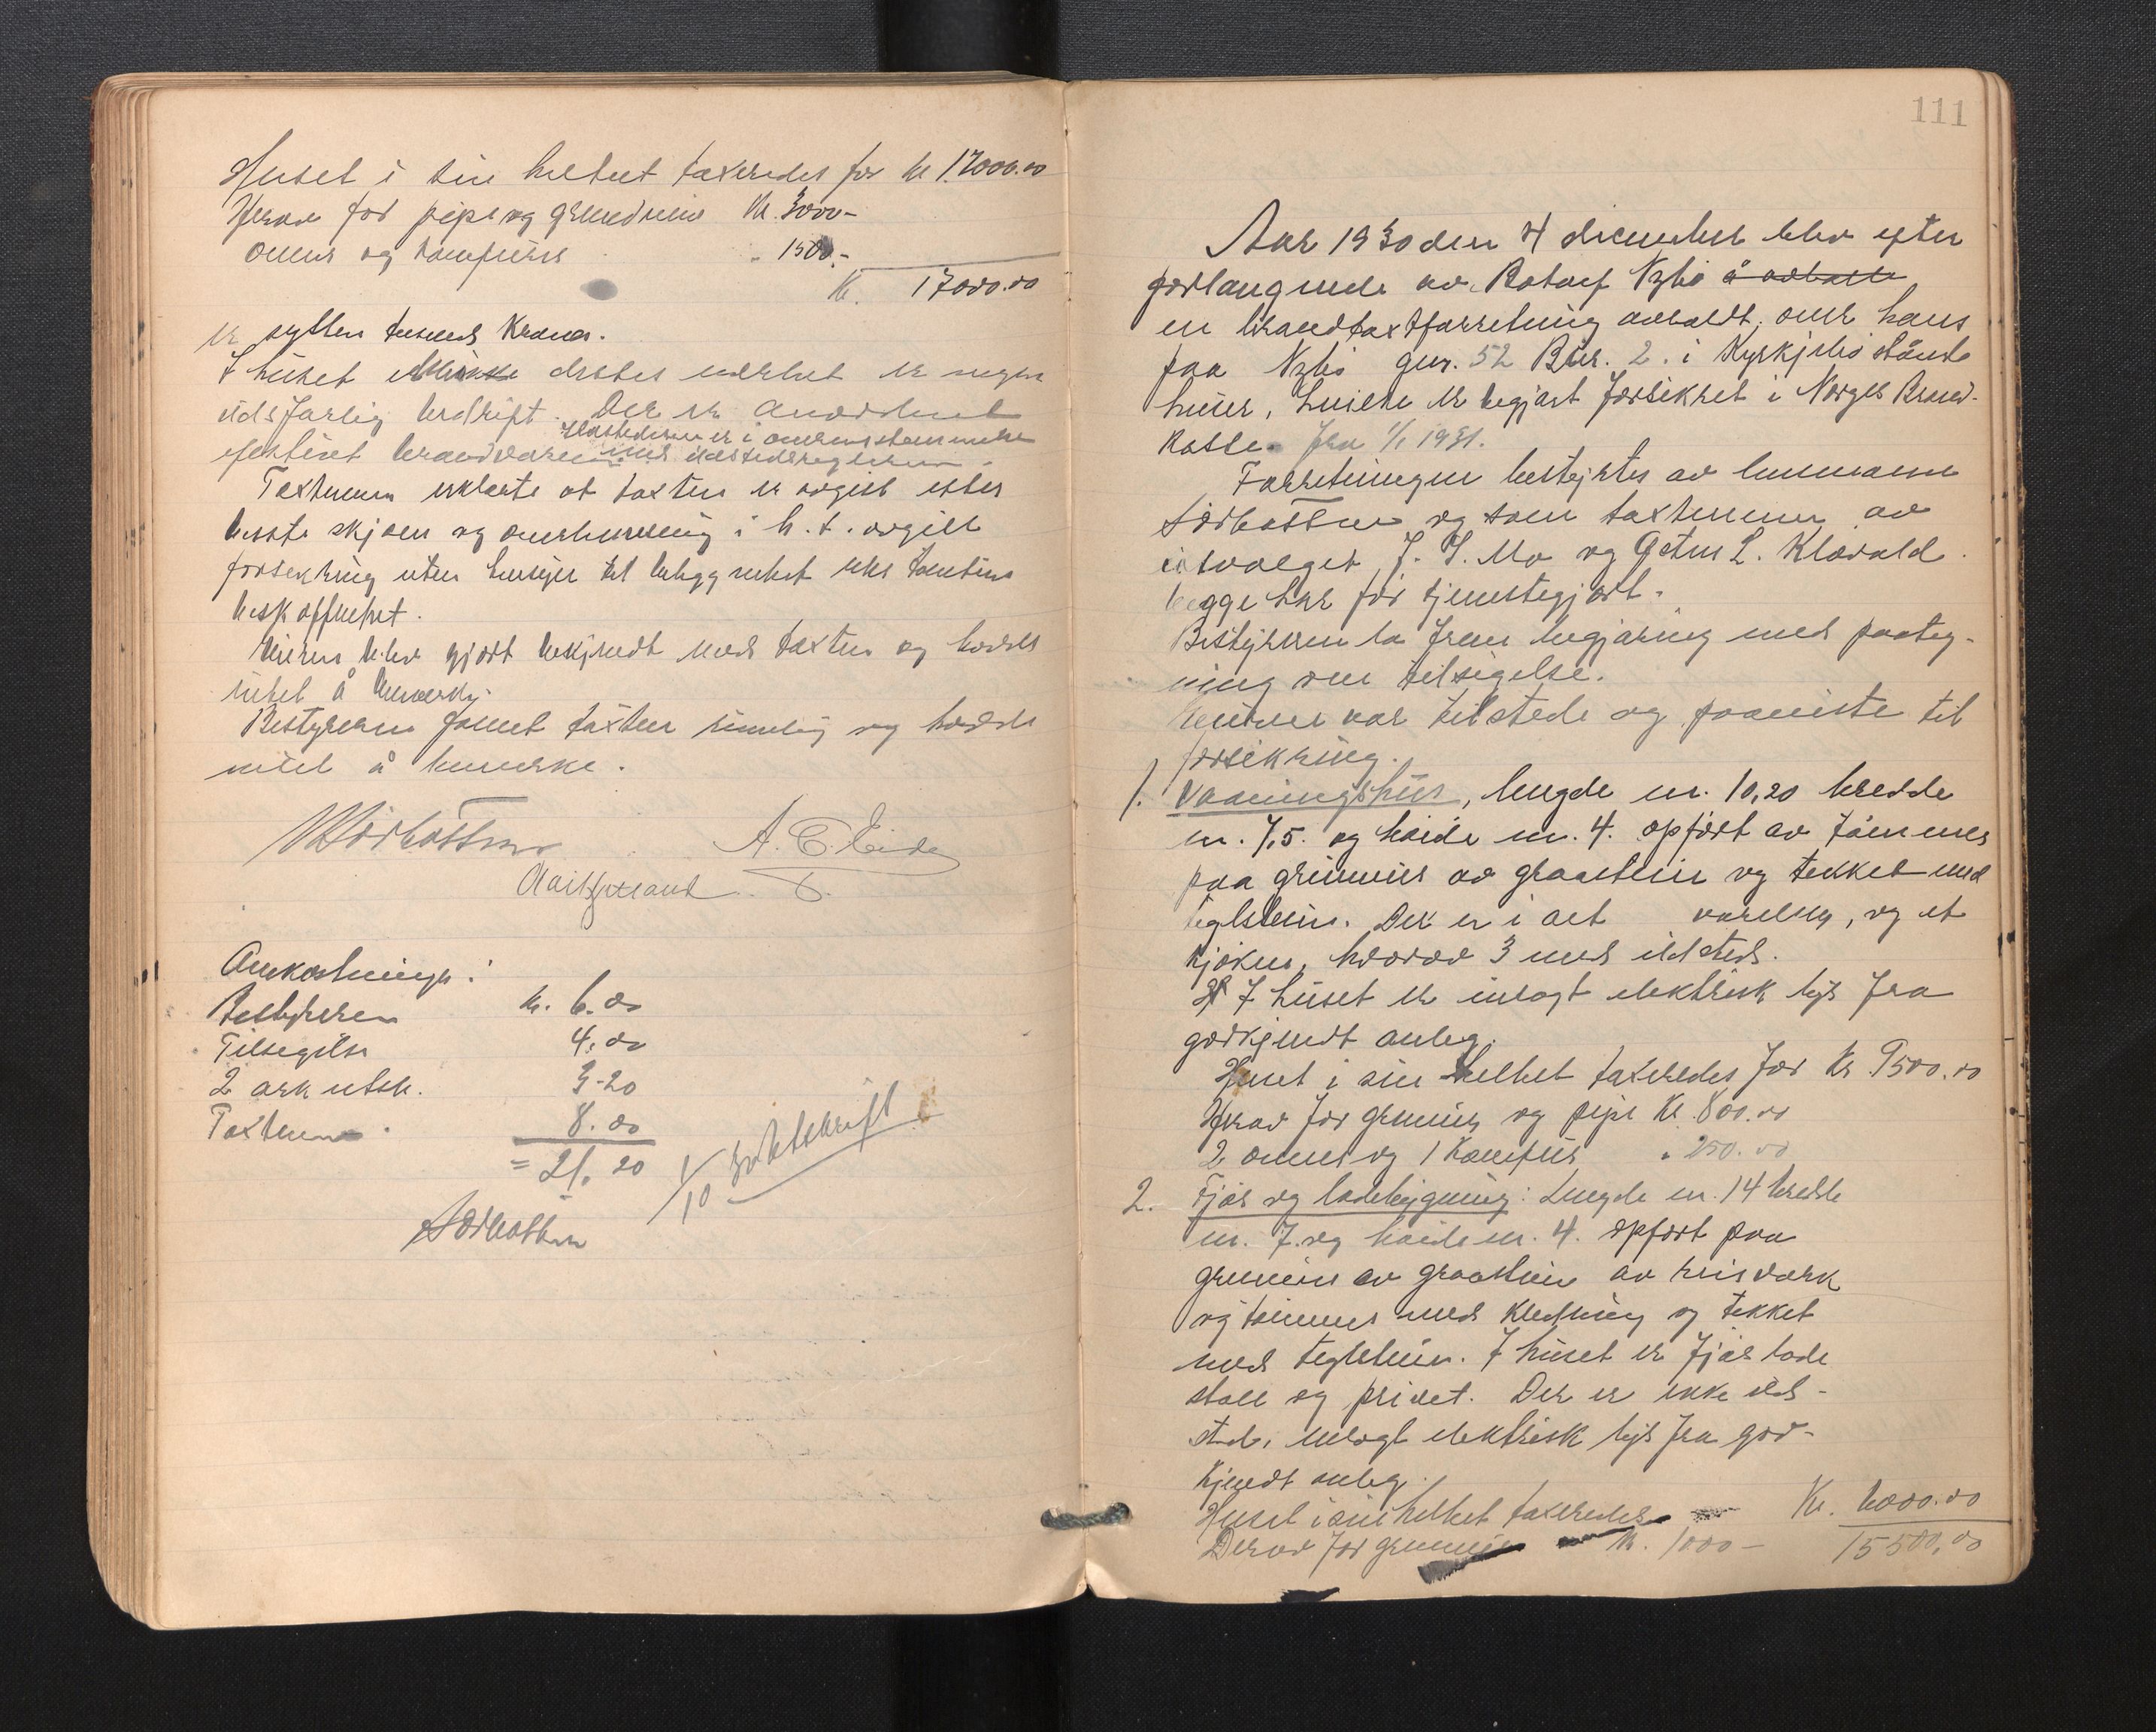 Huset i sin helhet taxeredes for kr 17000.00
Herav for pipe og grundmur Kr. 3000-
Ovner og komfuers " 1500.-
Kr. 17000.00
er sytten tusend Kroner.
I huset eller dettes nærhet er ingen
ildsfarlig bedrift. Der er anordnet
Ildstederne er i overensstemmelse
efektivt brandværen med ildstedsreglerne.
Taxtmenn erklærte at taxten er avgitt efter
beste skjøn og overbevisning i h. t. avgitt
forsikring uten hensyn til beliggenhet eller tomtens
beskaffenhet.
Eieren blev gjort bekjendt med taxten og hadde
intet å bemerke.
Bestyreren fannt taxten rimelig og hadde
intet å bemerke.
A. E. Eide
Omkostninger:
Bestyreren kr. 6.00
Tilsigelse 4.00
2 ark utsk. 3-20
Taxtmenn 8.00
= 21.20
1/10 utskrift
111
Aar 1930 den 4 december blev efter
forlangende av Rotolf Nybø å avholde
en brandtaxtforretning avholdt over hans
paa Nybø gnr. 52 Bnr. 2. i Kyrkjebø stående
huser, huserne er begjært forsikret i Norges Brand-
kasse. Fra 1/1 1931.
Forretningen bestyrtes av lensmann
Sørbotten og som taxtmenner av
utvalget J. J. Mo og Anton L. Kløvold.
begge har før tjenestegjort.
Bestyreren la frem begjæring med paateg-
ning om tilsigelse.
Eieren var tilstede og paaviste til
forsikring.
1. Vaaningshus, lengde m. 10,20 bredde
m. 7,5. og høide m. 4. opført av tømmer
paa grunmur av graastein og tekket med
teglstein. Der er i alt værelser, og et
kjøken, hvorav 3 med ildsted.
I huset er inlagt elektrisk lys fra
godkjendt anleg.
Huset i sin helhet taxeredes for Kr. 9500.00
Herav for grunmur og pipe Kr. 800.00
2 ovner og 1 komfur " 250.00
2. Fjøs og ladebygning: Lengde m. 14 bredde
m. 7. og høide m. 4. opført paa
grunmur av graastein av reisverk
og tømmer med kledning og tekket
med teglstein. I huset er fjøs lade
stall og privet. Der er ikke ild-
sted, inlagt elektrisk lys fra god-
kjendt anleg.
Huset i sin helhet taxeredes Kr. 6000.00
Derav for grunmuren Kr. 1000- 15500,00